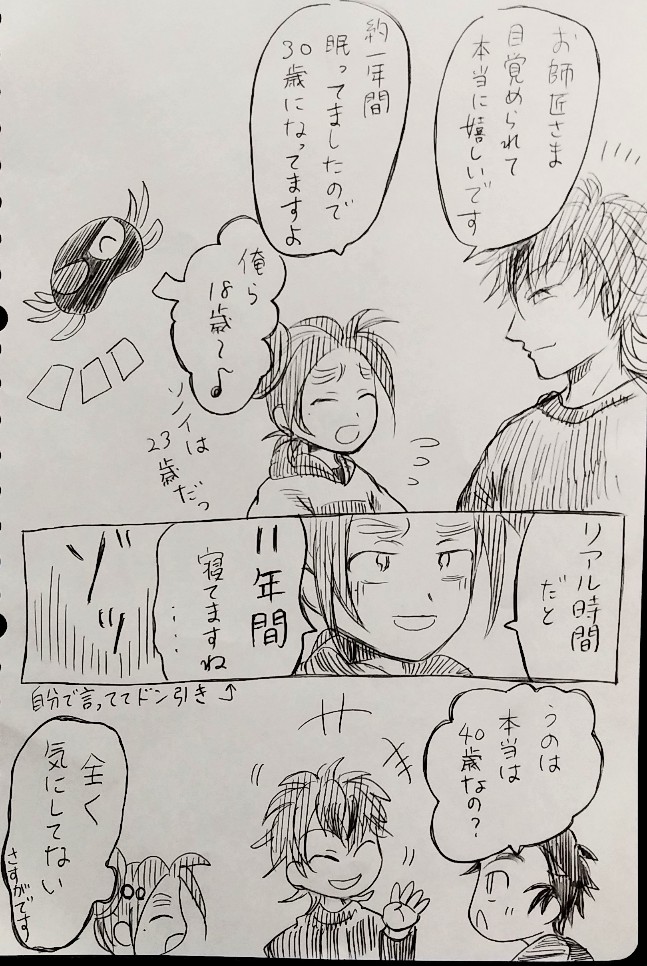 お師匠さま
目覚められて
本当に嬉しいです
約一年間
眠ってましたので
30歳になってますよ
俺ら
18歳〜♪
ソイは
23歳だっ
リアル時間
だと
11年間
寝てますね
……
ゾゾッ
自分で言っててドン引き↑
うのは
本当は
40歳なの?
全く
気にしてない
さすがです